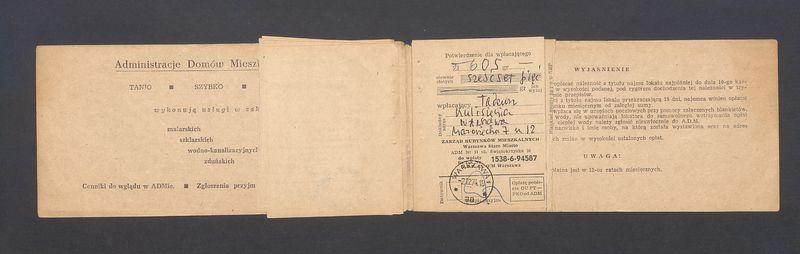 Administracje Domów Mieszk
TANIO ■ SZYBKO ■
wykonują usługi w zak
malarskich
szklarskich
wodno-kanalizacyjnych
zduńskich
Cenniki do wglądu w ADMie. ■ Zgłoszenia przyjm
Potwierdzenie dla wpłacającego
zł 605 gr —
słownie złotych sześćset pięć
gr j. wyżej
wpłacający Tadeusz
Kulisiewicz
Warszawa
m 12
Dokładny adres
ZARZĄD BUDYNKÓW MIESZKALNYCH
Warszawa Stare Miasto
ADM Nr 31 ul. Świętokrzyska
do wpłaty 1538-6-94587
OM Warszawa
WARSZAWA 1
Datownik
Opłatę pobie-
rze OU PT—
PKO od ADM
WYJAŚNIENIE
opłacać należność z tytułu najmu lokalu najpóźniej do dnia 10-go każ-
w wysokości podanej, pod rygorem dochodzenia tej należności w try-
przepisów.
z tytułu najmu lokalu przekraczającą 15 dni, najemca winien opłacić
unku miesięcznym od zaległej sumy.
wpłaca się w urzędach pocztowych przy pomocy załączonych blankietów.
wody, nie upoważniają lokatora do samowolnego wstrzymania opłat
cieplej wody należy zgłosić niezwłocznie do A.D.M.
nazwiska i imię osoby, na którą została wystawiona oraz na adres
ch zmian w wysokości ustalonych opłat.
UWAGA!
płatna jest w 12-tu ratach miesięcznych.